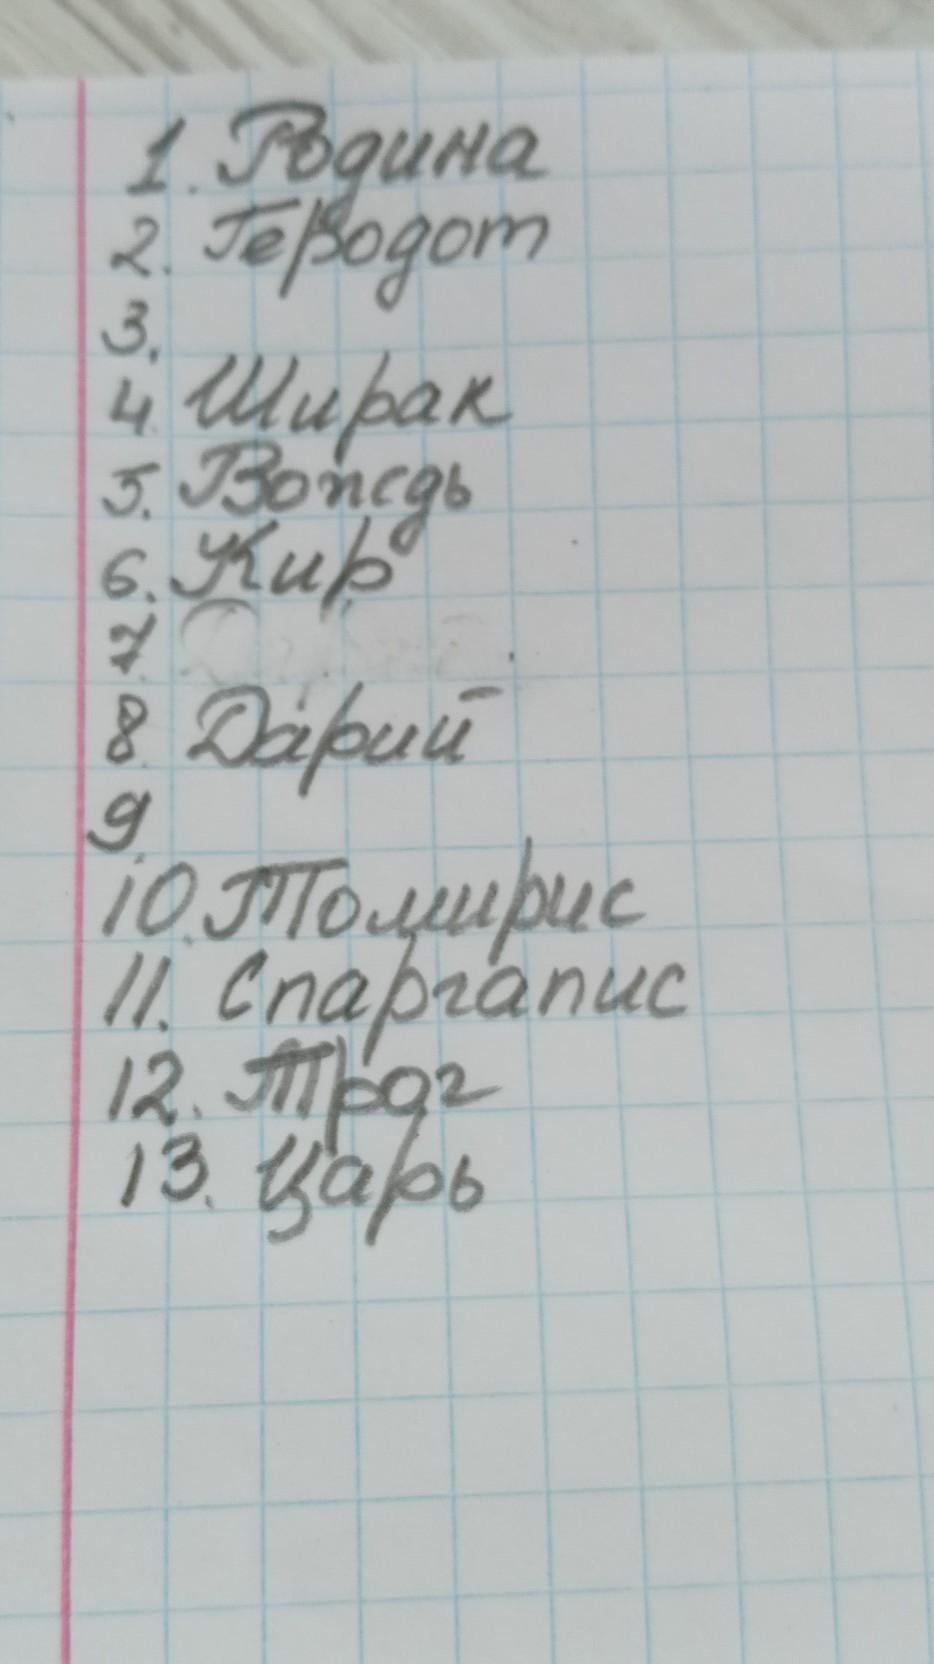 1. Родина
2. Геродот
3.
4. Ширак
5. Вождь
6. Кир
7.
8. Дарий
9.
10. Томирис
11. Спаргапис
12. Трог
13. Царь